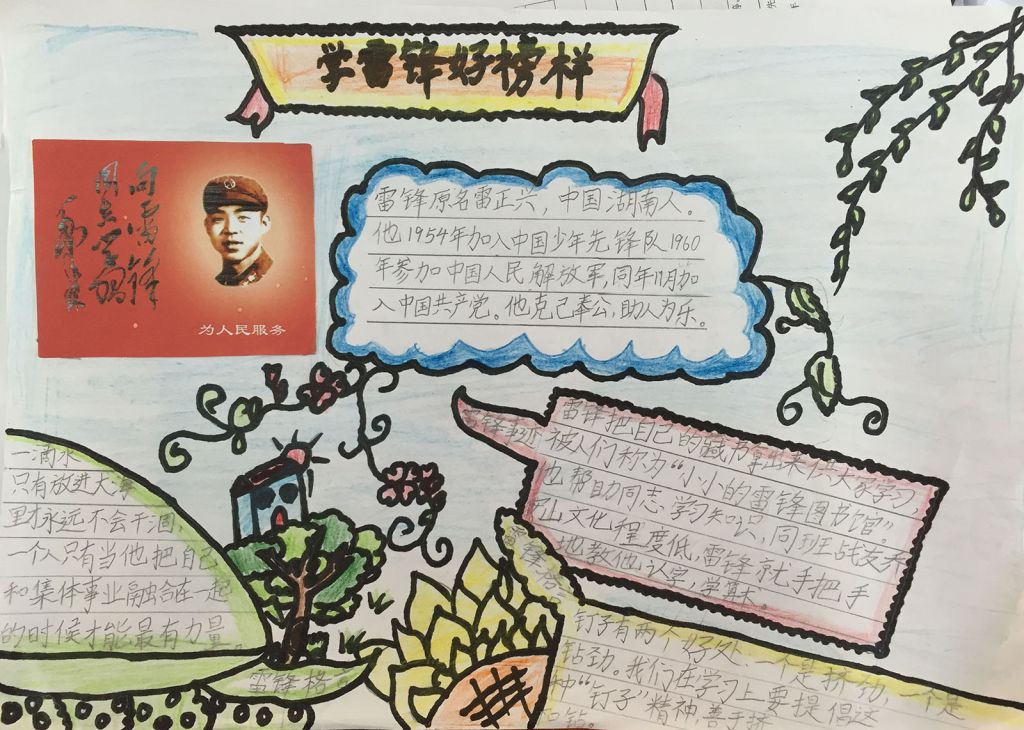 学雷锋好榜样
向雷锋
同志学习
毛泽东
为人民服务
雷锋原名雷正兴，中国湖南人。
他1954年加入中国少年先锋队1960
年参加中国人民解放军，同年11月加
入中国共产党。他克己奉公，助人为乐。
雷锋事迹
雷锋把自己的藏书拿出来供大家学习，
被人们称为“小小的雷锋图书馆”。
也帮助同志学习知识，同班战友乔
山文化程度低，雷锋就手把手
地教他认字，学算术。
一滴水
只有放进大海
里才永远不会干涸，
一个人只有当他把自己
和集体事业融合在一起
的时候才能最有力量
雷锋格
钉子有两个好处，一个是挤劲，一个是
钻劲。我们在学习上要提倡这
种“钉子”精神，善于挤
和钻。